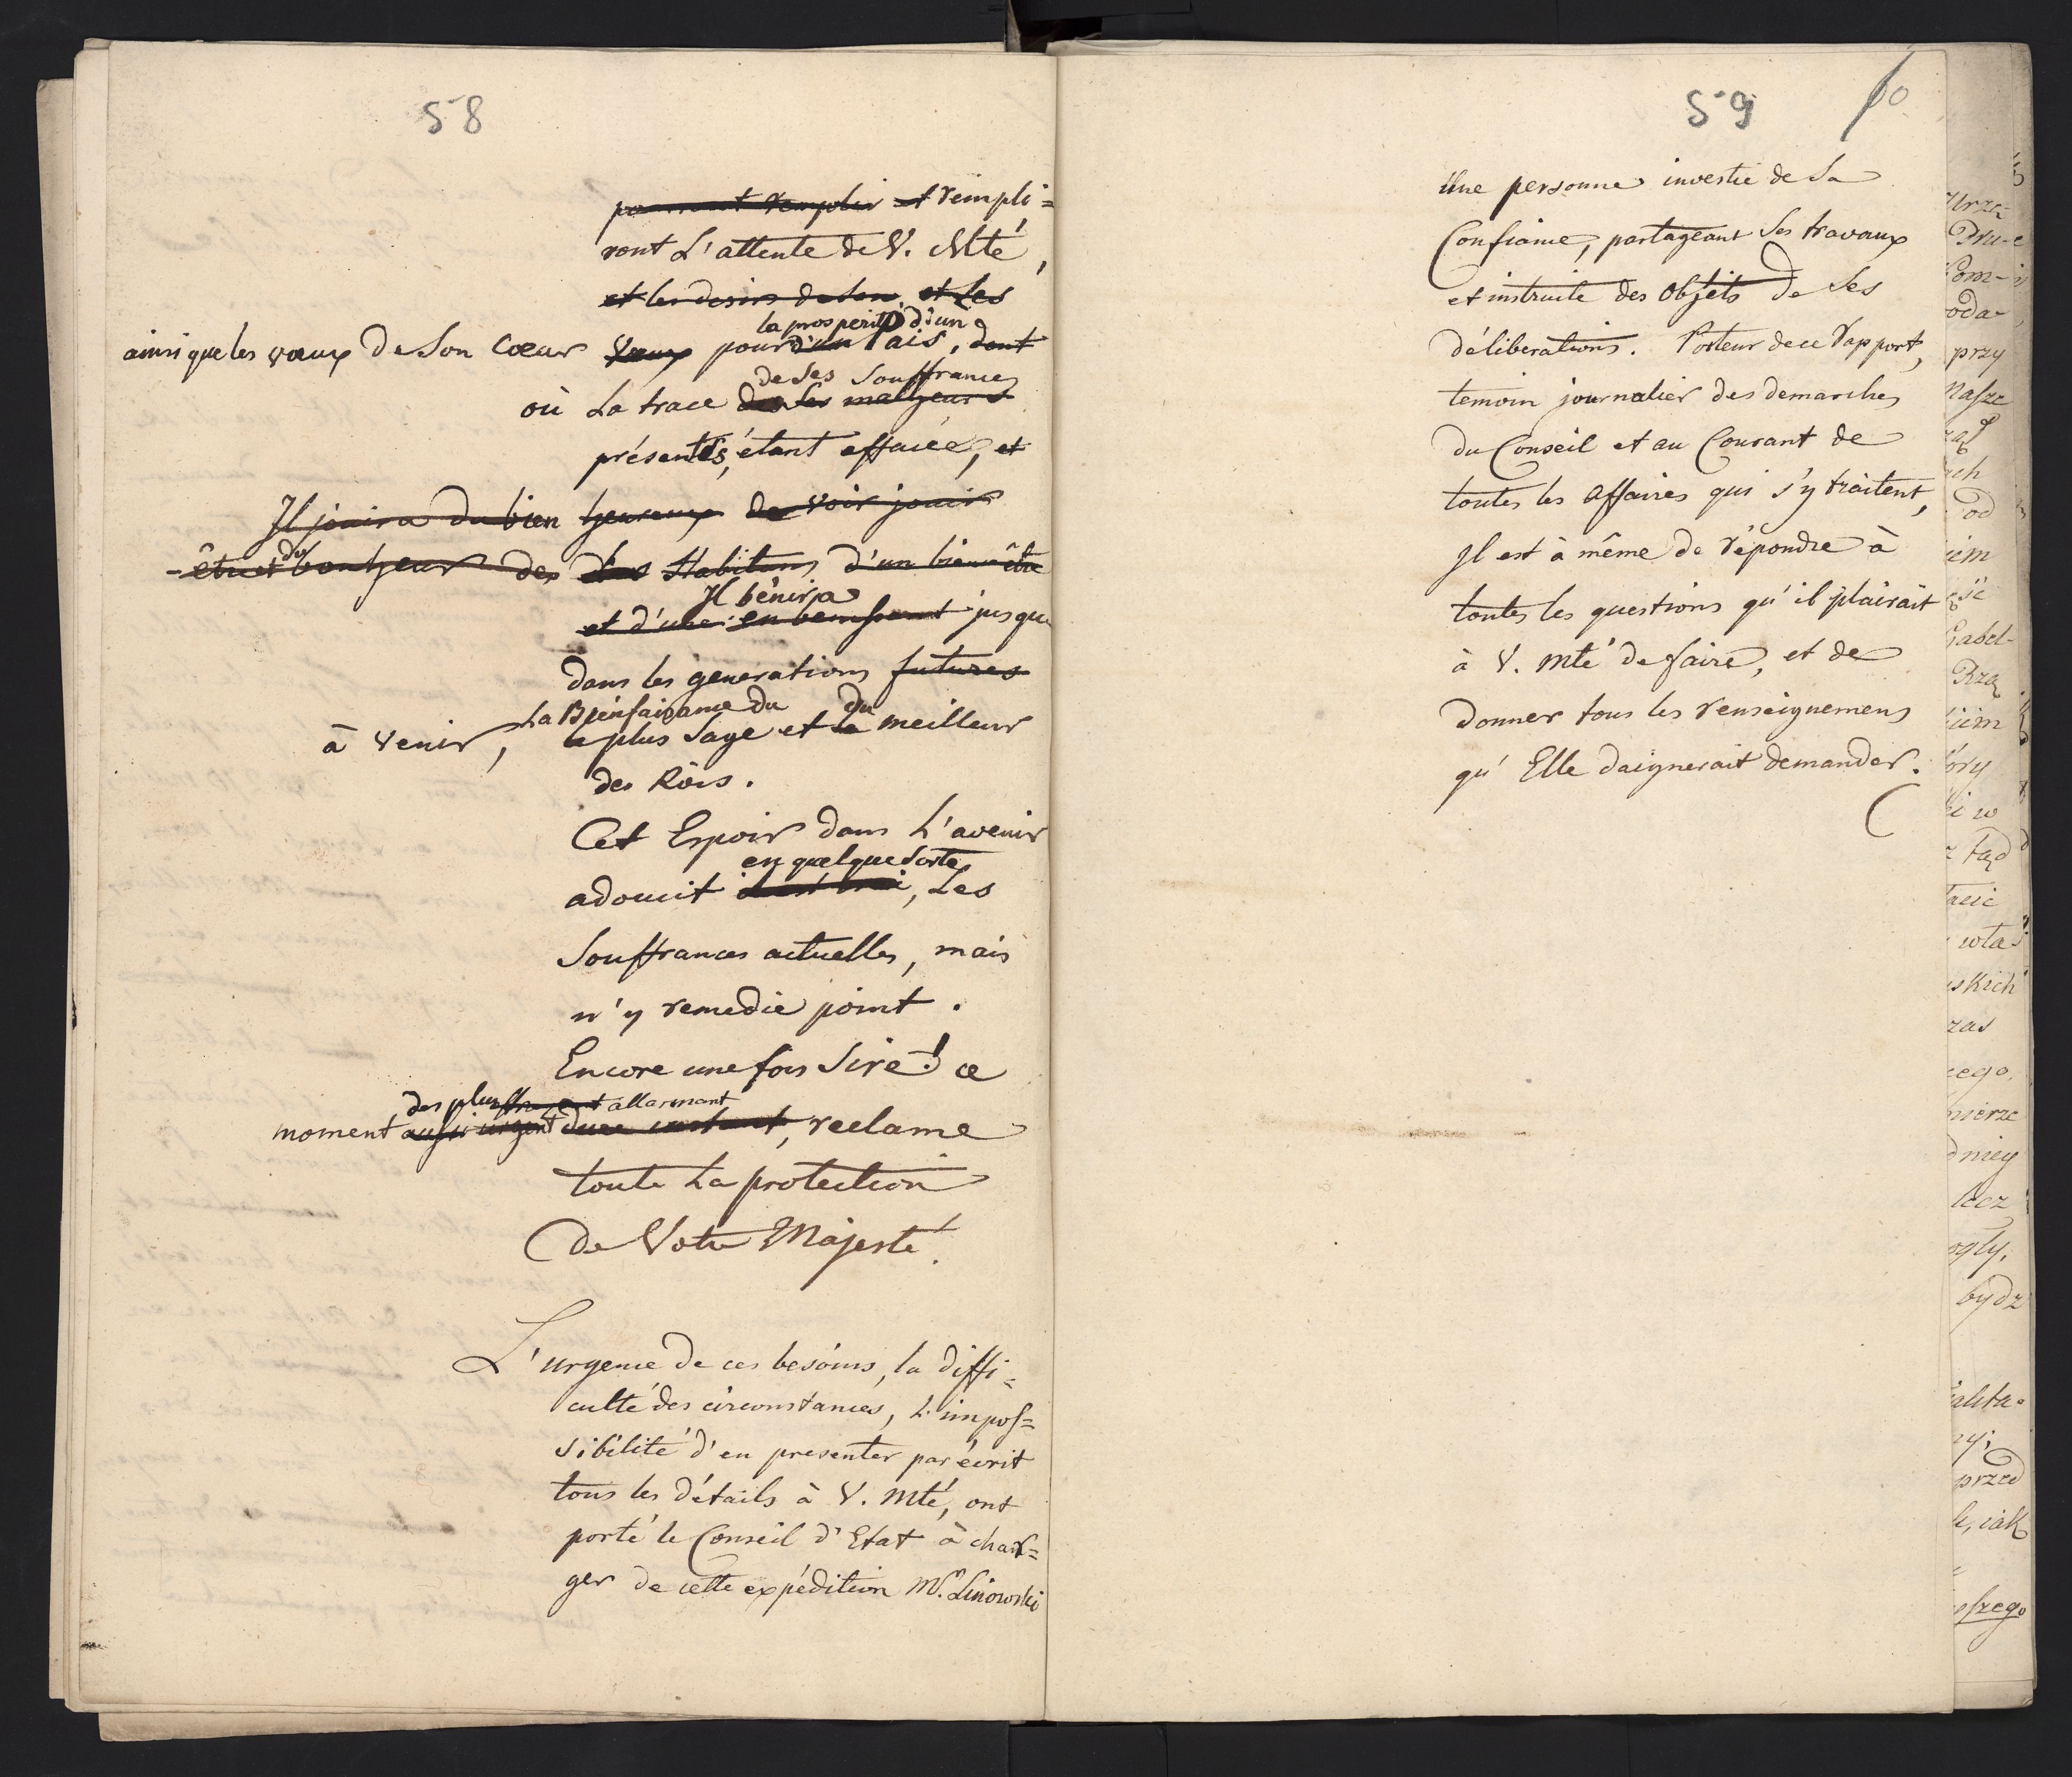 58
pourront remplir et rempli=
ront L'attente de V. Mté,
et les desirs de Son et Les
la prosperité d'un
ainsi que les vœux de Son Cœur vœux pour d'un Païs, dont
de Ses Souffrances
où La trace des Ses malheurs
présentes, étant effacée, et
Il jouira du bien heureux de voir jouir
-être et du bonheur des des Habitans d'un bien-être
Il bénira
et d'une en benissant jusque
dans les generations futures
La Bienfaisance du du
à venir, le plus Sage et le meilleur
des Rois.
Cet Espoir dans L'avenir
en quelque Sorte
adoucit il est vrai, Les
Souffrances actuelles, mais
n'y remedie point.
Encore une fois Sire! ce
des plus et allarmant
moment aussi urgent instant, reclame
toute La protection
De Votre Majesté.
L'urgence de ces besoins, la diffi=
culté des circonstances, L'impos=
sibilité d'en presenter par écrit
tous les détails à V. Mté, ont
porté le Conseil d'Etat à char=
ger de cette expédition Mr. Linowski
59 60
Une personne investie de Sa
Confiance, partageant Ses travaux
et instruite des Objets de Ses
déliberations. Porteur de ce Rapport,
temoin journalier des demarches
du Conseil et au Courant de
toutes les Affaires qui s'y traitent,
Il est à même de répondre à
toutes les questions qu'il plairait
à V. Mté de faire, et de
donner tous les renseignemens
qu'Elle daignerait demander.
przy
lecz
bydz
przed